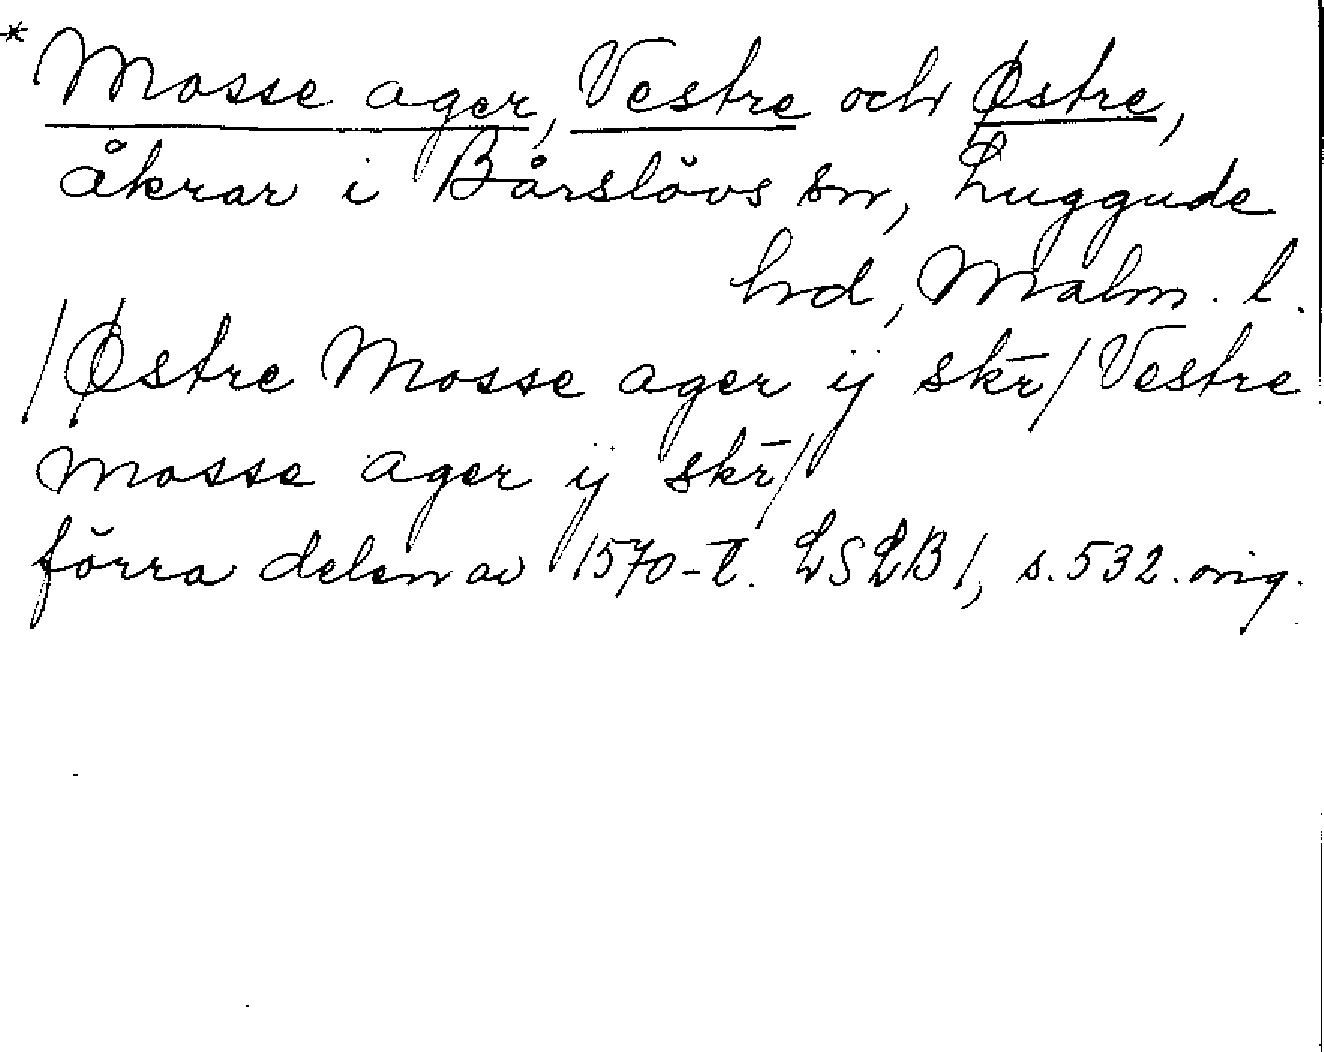 *Mosse ager, Vestre och Østre,
åkrar i Bårslövs sn, Luggude
hd, Malm. l.
/Østre Mosse ager ij skr̄/Vestre
Mosse ager ij skr̄/
förra delen av 1570-t. LSLB 1, s. 532. orig.